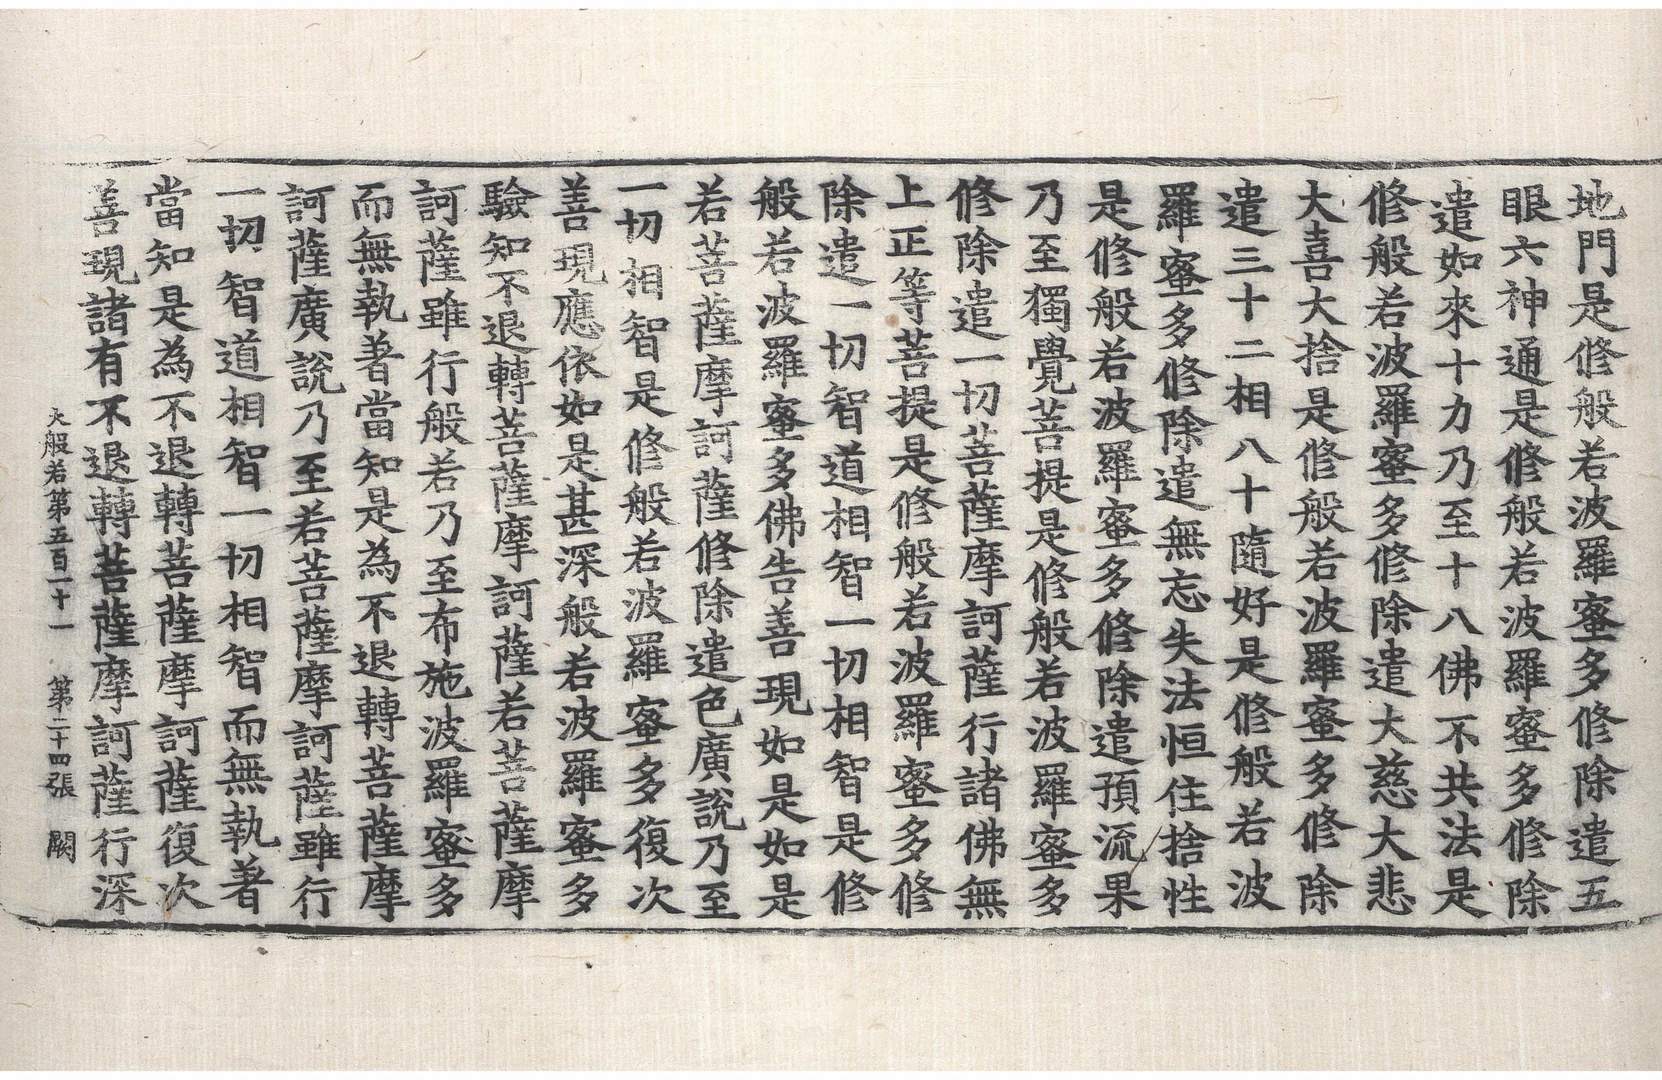 地門是修般若波羅蜜多修除遣五
眼六神通是修般若波羅蜜多修除
遣如來十力乃至十八佛不共法是
修般若波羅蜜多修除遣大慈大悲
大喜大捨是修般若波羅蜜多修除
遣三十二相八十隨好是修般若波
羅蜜多修除遣無忘失法恒住捨性
是修般若波羅蜜多修除遣預流果
乃至獨覺菩提是修般若波羅蜜多
修除遣一切菩薩摩訶薩行諸佛無
上正等菩提是修般若波羅蜜多修
除遣一切智道相智一切相智是修
般若波羅蜜多佛告善現如是如是
若菩薩摩訶薩修除遣色廣說乃至
一切相智是修般若波羅蜜多復次
善現應依如是甚深般若波羅蜜多
驗知不退轉菩薩摩訶薩若菩薩摩
訶薩雖行般若乃至布施波羅蜜多
而無執著當知是為不退轉菩薩摩
訶薩廣說乃至若菩薩摩訶薩雖行
一切智道相智一切相智而無執著
當知是為不退轉菩薩摩訶薩復次
善現諸有不退轉菩薩摩訶薩行深
大般若第五百二十一 第二十四張 闕